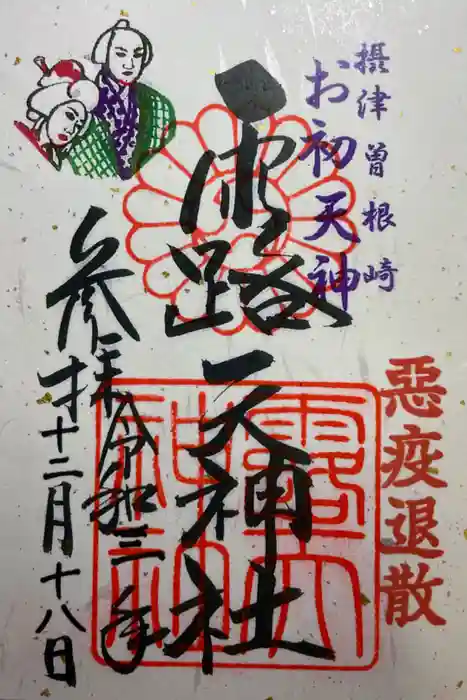 摂津曽根崎
お初天神
惡疫退散
露天神社
露天神社
参拝令和三年
十二月十八日